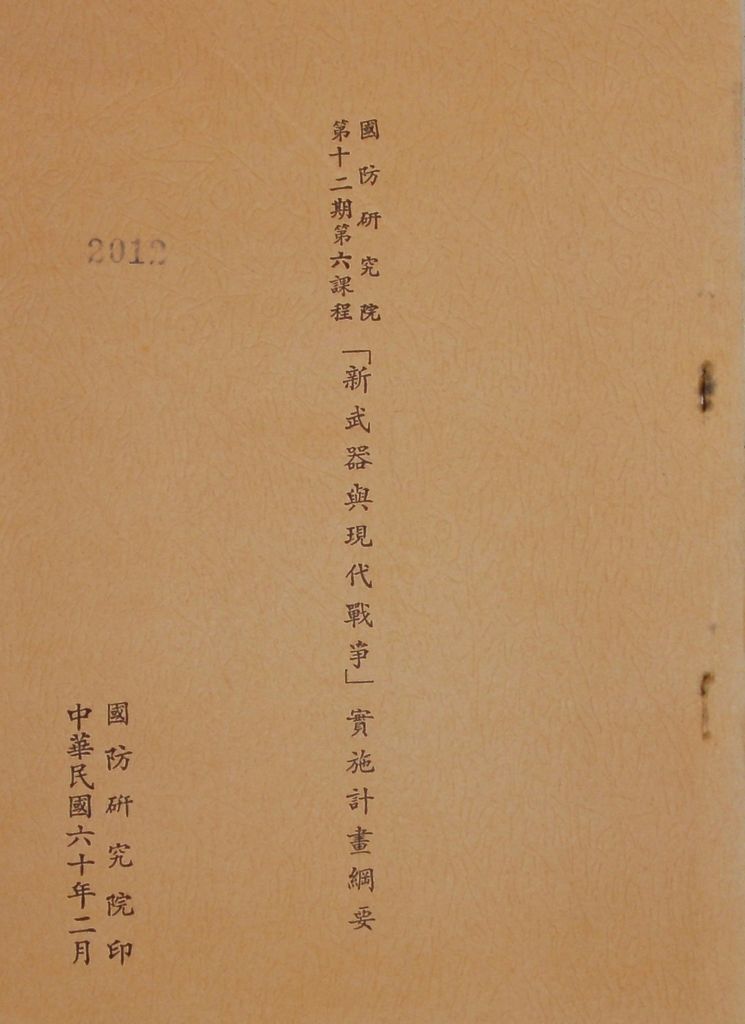 國防研究院
第十二期第六課程
「新武器與現代戰爭」實施計畫綱要
2012
國防研究院印
中華民國六十年二月